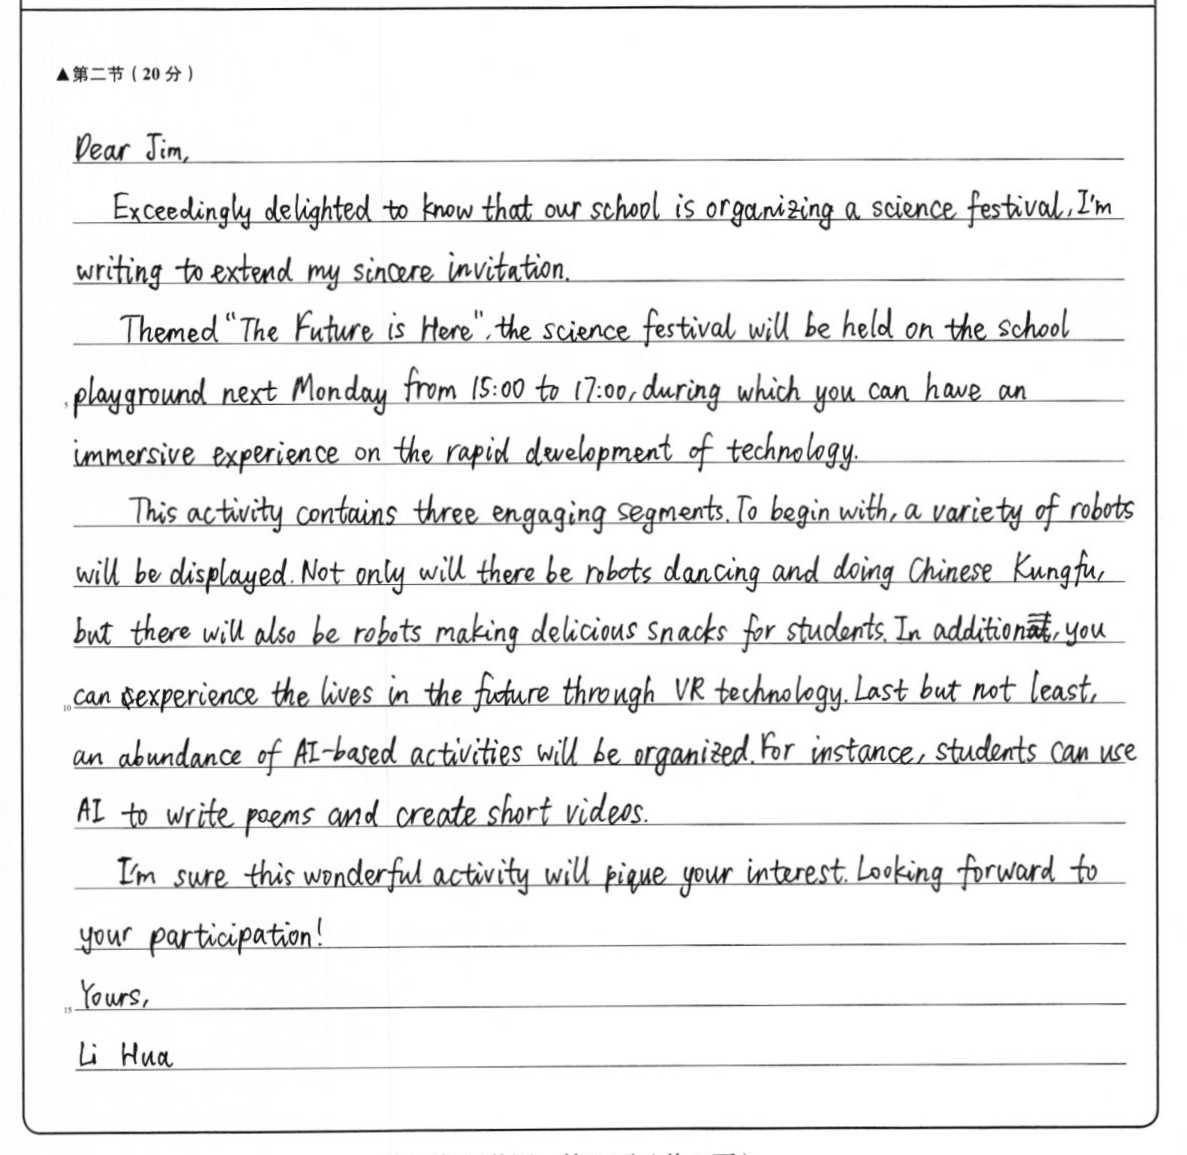 ▲第二节（20分）
Dear Jim,
Exceedingly delighted to know that our school is organizing a science festival, I'm
writing to extend my sincere invitation.
Themed "The Future is Here", the science festival will be held on the school
playground next Monday from 15:00 to 17:00, during which you can have an
5
immersive experience on the rapid development of technology.
This activity contains three engaging segments. To begin with, a variety of robots
will be displayed. Not only will there be robots dancing and doing Chinese Kungfu,
but there will also be robots making delicious snacks for students. In addition, you
can experience the lives in the future through VR technology. Last but not least,
10
an abundance of AI-based activities will be organized. For instance, students can use
AI to write poems and create short videos.
I'm sure this wonderful activity will pique your interest. Looking forward to
your participation!
Yours,
15
Li Hua